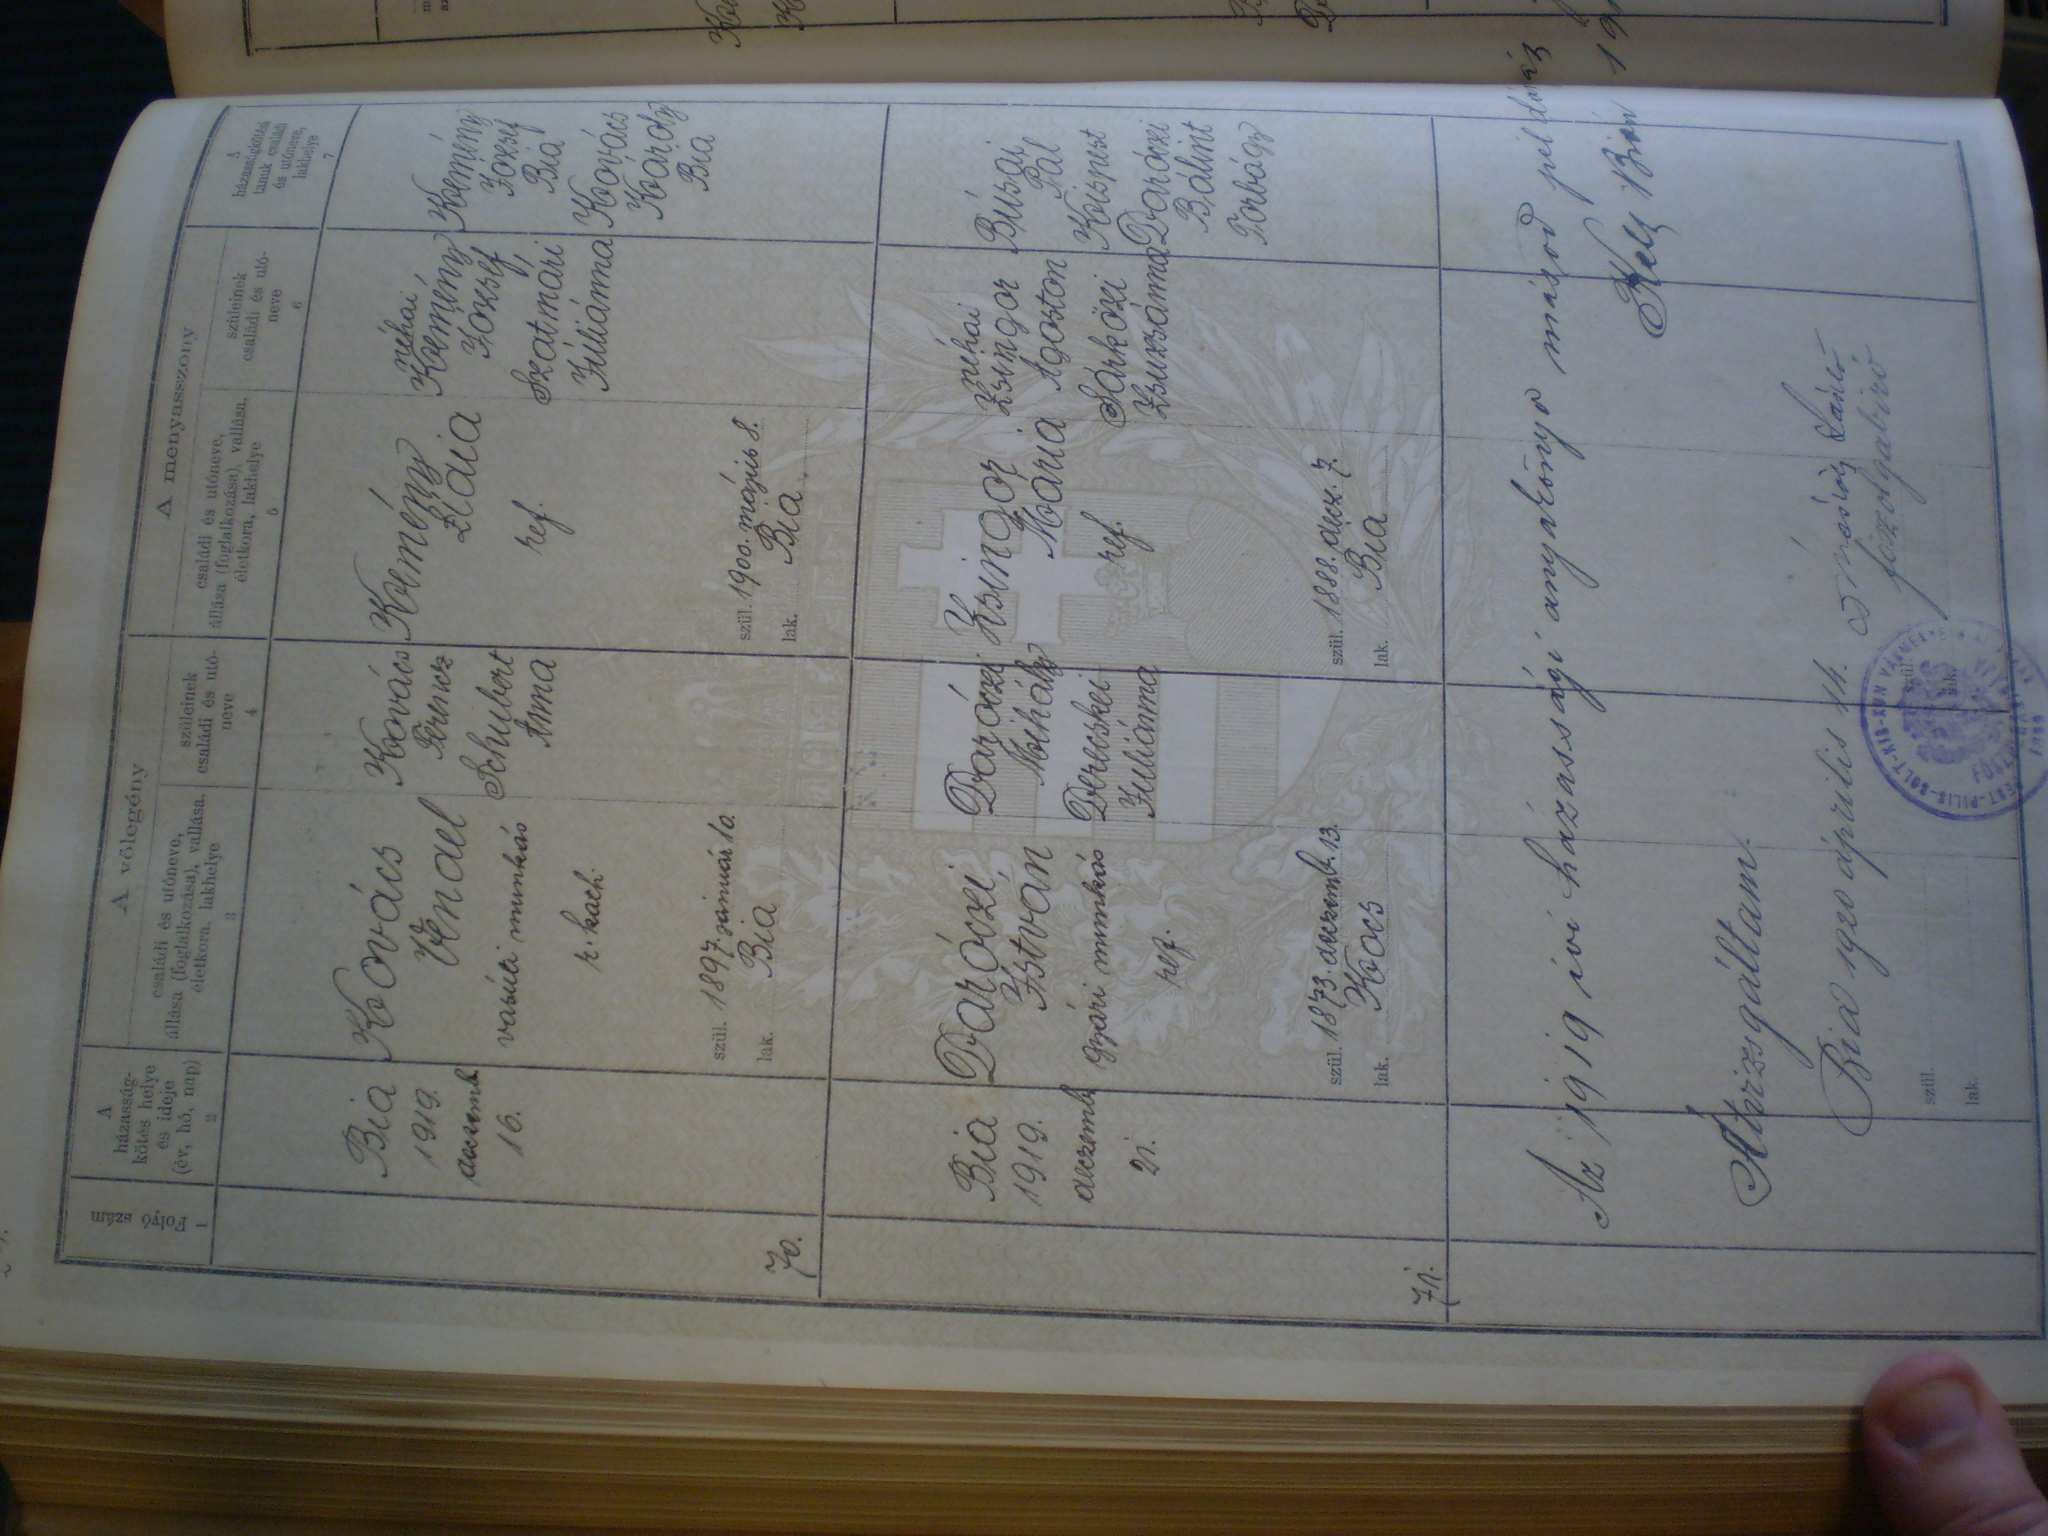 1
Folyó szám
2
A
házasság-
kötés helye
és ideje
(év, hó, nap)
A vőlegény
3
családi és utóneve,
állása (foglalkozása), vallása,
életkora, lakhelye
4
szüleinek
családi és utó-
neve
A menyasszony
5
családi és utóneve,
állása (foglalkozása), vallása,
életkora, lakhelye
6
szüleinek
családi és utó-
neve
7
A
házasságkötési
tanuk családi
és utóneve,
lakhelye
70.
Bia
1919.
deczemb.
16.
Kovács
vasúti munkás
r. kath.
szül. 1897. január 10.
lak. Bia
Kovács
Ferencz
Schubert
Anna
Kemény
Mária
ref.
szül. 1900. május 8.
lak. Bia
néhai
Kemény
József
Szatmári
Juliánna
Kemény
József
Bia
Kovács
Károly
Bia
71.
Bia
1919.
deczemb.
21.
Daróczi
István
gyári munkás
ref.
szül. 1873. deczemb. 13.
lak. Kocs
Daróczi
Mihály
Derecskei
Juliánna
Zsingor
Mária
ref.
szül. 1888. decz. 7.
lak. Bia
néhai
Zsingor
Ágoston
Sárközi
Zsuzsánna
Búzai
Pál
Kispest
Daróczi
Bálint
Torbágy
Az 1919 ivi házassági anyakönyv másod példány
Kelt Bián
Átvizsgáltam.
Bia 1920 április 14.
főszolgabiró
szül.
lak.
szül.
lak.